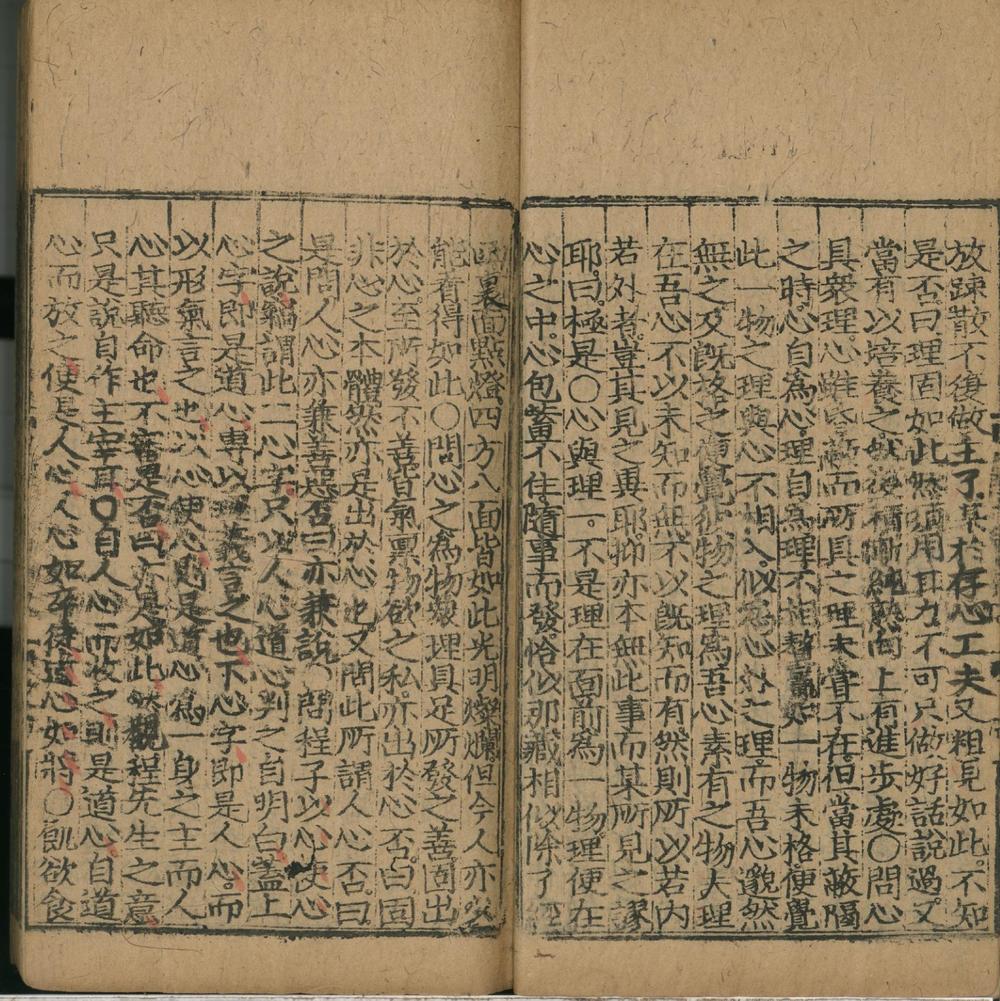 放踈散不復做主了某於存心工夫又粗見如此不知
是否曰理固如此然須用其力不可只做好話說過又
當有以培養之然後積漸純熟向上有進步處〇問心
具衆理心雖昏蔽而所具之理未嘗不在但當其蔽隔
之時心自為心理自為理不相贅屬如一物未格便覺
此一物之理與心不相入似為心外之理而吾心邈然
無之及旣格之便覺彼物之理爲吾心素有之物夫理
在吾心不以未知而無不以旣知而有然則所以若内
若外者豈其見之異耶抑亦本無此事而某所見之謬
耶曰極是〇心與理一不是理在面前爲一物理便在
心之中心包蓄不住隨事而發恰似那藏相似除了經
函裏面點燈四方八面皆如此光明燦爛但今人亦少
能看得如此〇問心之爲物衆理具足所發之善固出
於心至所發不善皆氣禀物欲之私亦出於心否曰固
非心之本體然亦是出於心也又問此所謂人心否曰
是問人心亦兼善惡否曰亦兼說〇問程子以心使心
之說竊謂此二心字只以人心道心判之自明白盖上
心字即是道心專以理義言之也下心字即是人心而
以形氣言之也以心使心則是道心爲一身之主而人
心其聽命也不審是否曰亦是如此然觀程先生之意
只是說自作主宰耳〇自人心而收之則是道心自道
心而放之便是人心人心如卒徒道心如將〇飢欲食